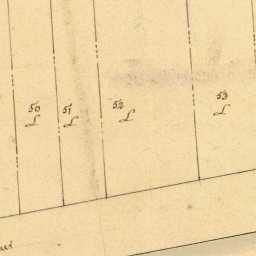 50 51 52 53
L L L L